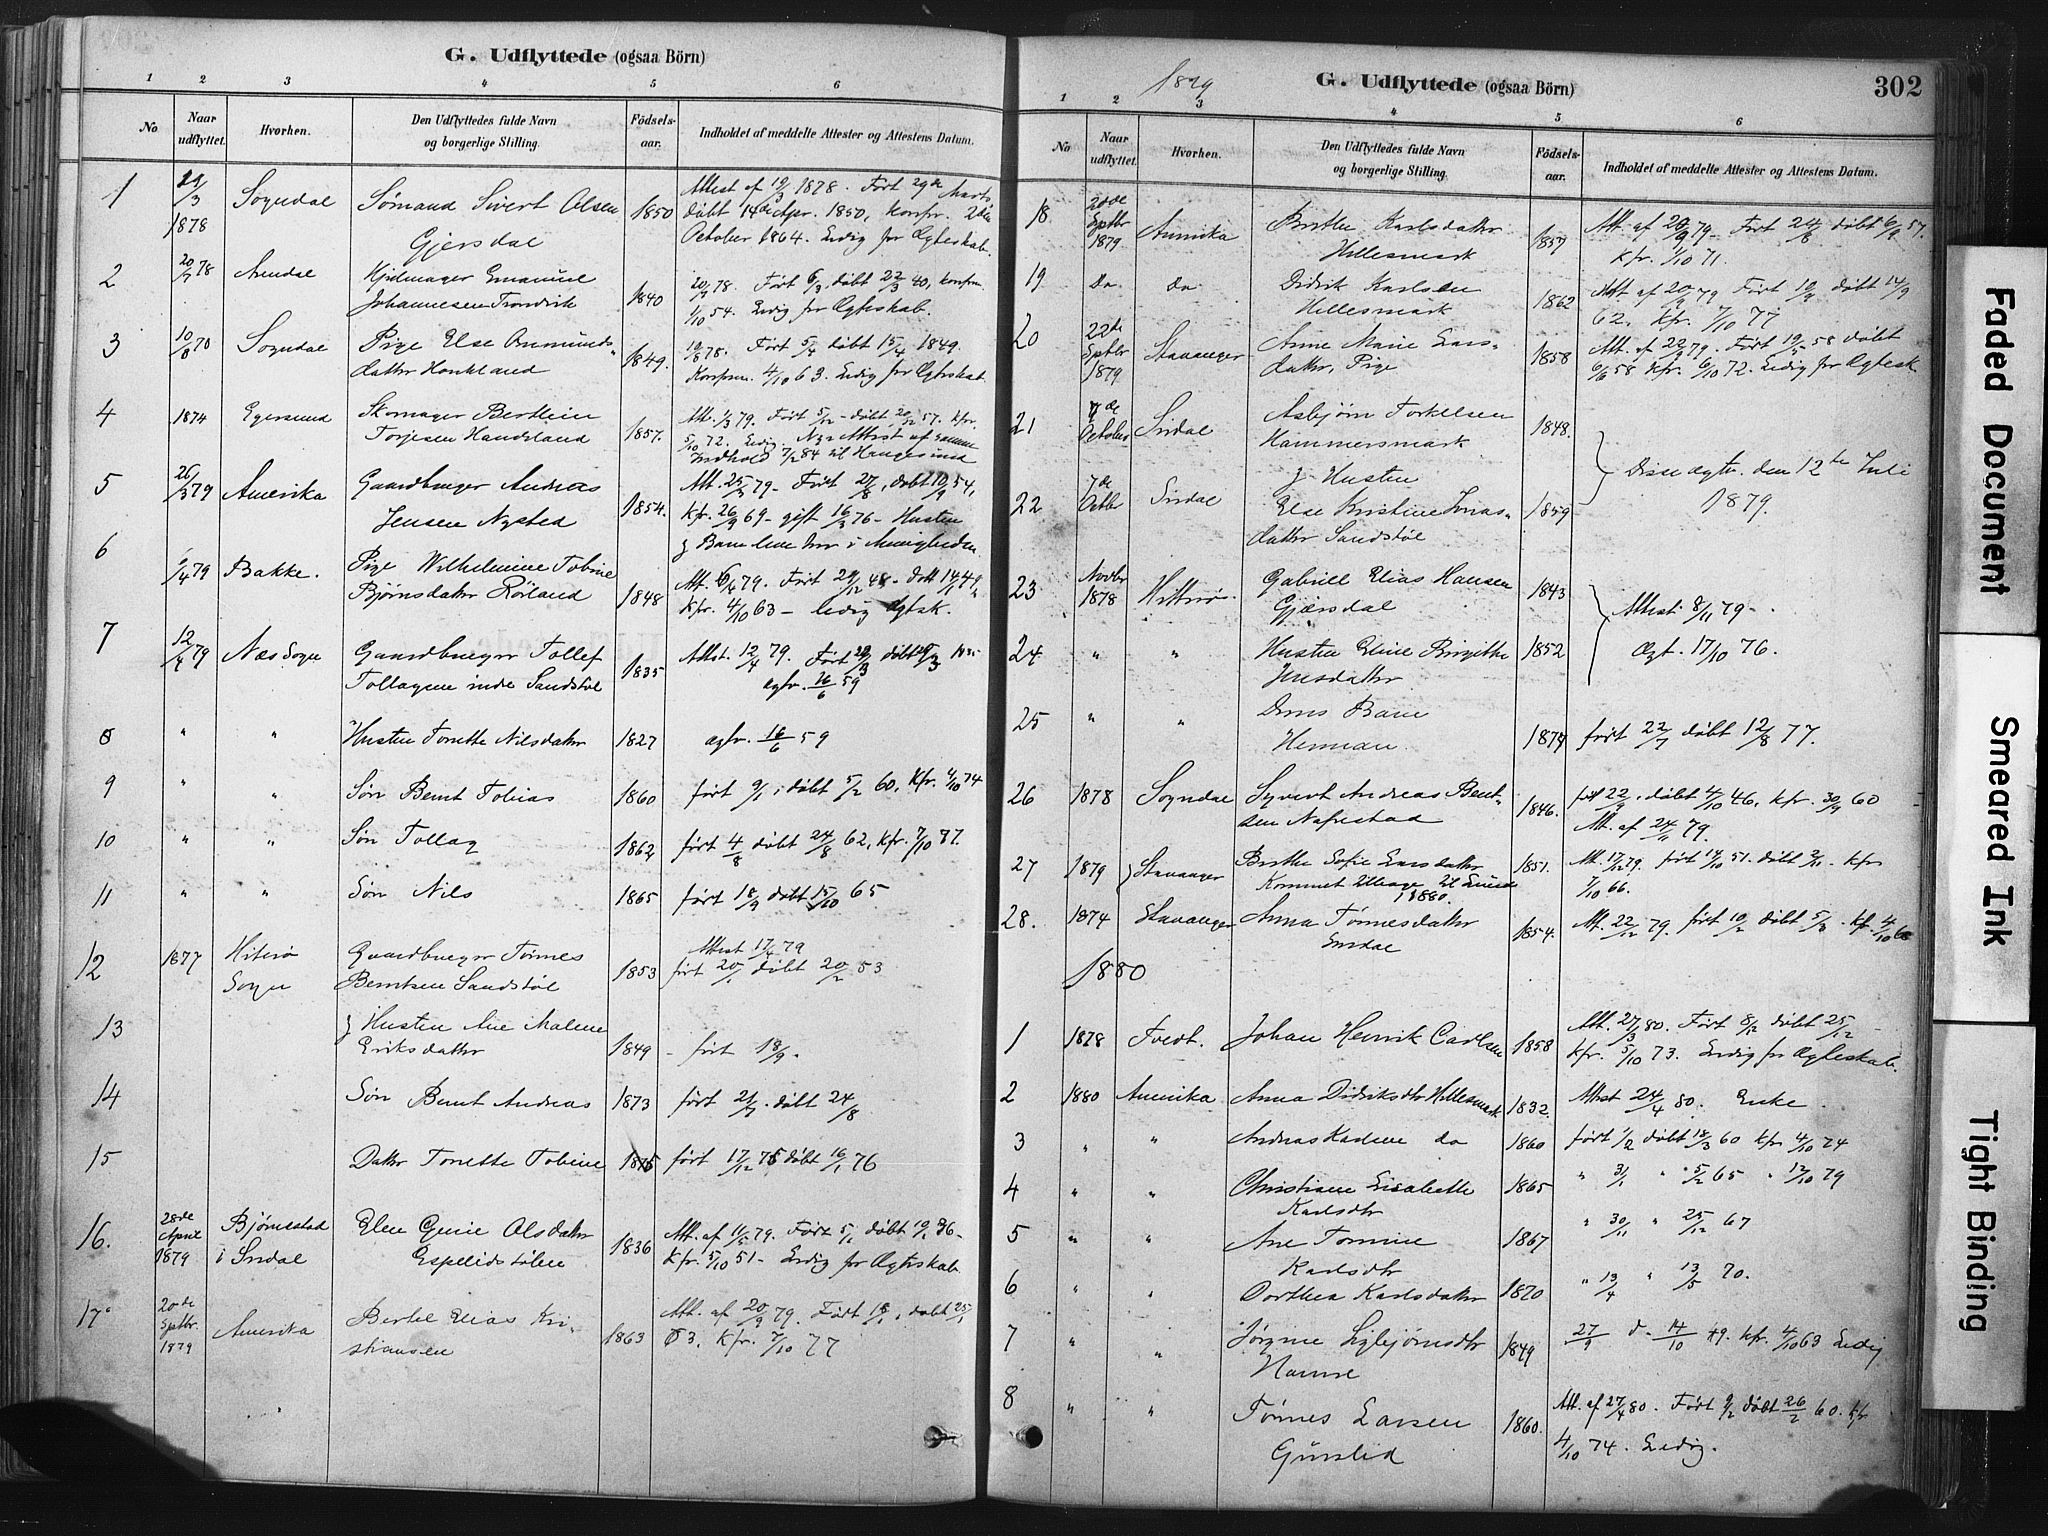 G. Udflyttede (ogsaa Börn)
1 2 3 4 5 6
No
Naar udflyttet.
Hvorhen.
Den Udflyttedes fulde Navn og borgerlige Stilling.
Födsels-aar.
Indholdet af meddelte Attester og Attestens Datum.
1 21/3 1878 Sogndal Sømand Sivert Olsen 1850 Attest af 19/3 1878. Født 29de Marts
Gjersdal døbt 14de Apr. 1850, konfr. 2den
October 1864. Ledig for Ægteskab.
2 20/7 78 Arendal Emanuel 1840 20/7 78. Født 6/3 døbt 22/3 40, konfrm.
Johannesen 1/10 54. Ledig for Ægteskab.
3 10/8 78 Sogndal Pige Else Aanunds- 1849. 10/8 78. Født 5/4 døbt 15/4 1849.
datter Haukland Konfrm. 4/10 63. Ledig for Ægteskab.
4 1874 Egersund Skomager Berthin 1857. Att. 1/3 79. Født 5/12 døbt 20/12 57. kfr.
Torjesen Haukland 5/10 72. Ledig. Nye Attest af samme
Indhold 7/2 84 til Haugesund
5 26/3 79 Amerika Gaardbruger Andreas 1854. Att. 25/3 79. Født 27/8, døbt 10/9 54,
Jensen Nysted kfr. 26/9 69 - gift 16/3 76 - Hustru
& Barn leve her i Menigheden
6 1/4 79 Bakke. Pige Wilhelmine Tobine 1848
Bjørnsdatter Rørland kfr. 4/10 63 - ledig Ægtsk.
7 12/4 79 Næs Sogn Gaardbruger Tollef 1835 Attest. 12/4 79.
Tollagsen indre Sandstøl ægtv. 16/6 59
8 " " Hustru Tonette Nilsdatter 1827 ægtv. 16/6 59
9 " " Søn Bernt Tobias 1860 født 9/1, døbt 5/2 60, kfr. 4/10 74
10 " " Søn Tollag 1862 født 4/8 døbt 24/8 62, kfr. 7/10 77.
11 " " Søn Nils 1865 født 18/9 døbt 15/10 65
12 1877 Hiterø Gaardbruger Tønnes 1853 Attest 17/4 79
Sogn Berntsen Sandstøl født 20/1 døbt 20/2 53
13 & Hustru Ane Malene
Eriksdatter 1849 - født 18/9.
14 Søn Bernt Andreas 1873 født 21/7. døbt 24/8
15 Datter Tonette Tobine 1875 født 17/12 75 døbt 16/1 76
16. 28de April 1879 Bjørnestad i Sirdal Elen Gurie Olsdatter 1836 Att. af 11/5 79. Født 5/1 døbt 19/1 36 -
Espelidstølen kfr. 5/10 51 - Ledig for Ægteskab.
17 20de Septbr. 1879 Amerika Bertel Elias Kri- 1863 Att. af 20/9 79. Født 18/1, døbt 25/1
stiansen 63. kfr. 7/10 77
1879
G. Udflyttede (ogsaa Börn)
302
1 2 3 4 5 6
No
Naar udflyttet.
Hvorhen.
Den Udflyttedes fulde Navn og borgerlige Stilling.
Födsels-aar.
Indholdet af meddelte Attester og Attestens Datum.
18 20de Sptbr 1879 Amerika Berthe Karlsdatter 1857 Att. af 20/9 79 - Født 24/8 døbt 6/9 57.
Hellesmark kfr. 1/10 71.
19 Do Do Didrik Karlsen 1862 Att af 20/9 79 Født 19/8 døbt 14/9
Hellesmark 62. kfr. 7/10 77
20 22de Sptbr 1879 Stavanger Anne Marie Lars- 1858 Att. af 22/9 79. Født 19/5 58 døbt
datter, Pige 6/6 58 kfr. 6/10 72. Ledig for Ægtesk
21 7de Octobr Sirdal Asbjørn Torkelsen 1848.
Hammersmark
& Hustru Disse ægtv. den 12te Juli
22 7de Octbr Sirdal Else Kristine Jonas- 1859 1879.
datter Sandstøl
23 Novbr 1878 Hitterø Gabriel Elias Hansen 1843
Gjersdal Attest 8/11 79 -
24 " " Hustru Eline Birgitte 1852 Ægt. 17/10 76.
Jensdatter
25 " " Deres Barn
Herman 1877 født 22/7 døbt 12/8 77.
26 1878 Sogndal Syvert Andreas Bent- 1846. født 22/9, døbt 4/10 46, kfr. 30/9 60
sen Nafrestad Att. af 24/11 79.
27 1879 Stavanger Berthe Sofie Larsdatter 1851. Att. 17/12 79. født 14/10 51. døbt 2/11. kfr
Kommet tilbage til Lunde 1880. 7/10 66.
28. 1874 Stavanger Anna Tønnesdatter 1854. Att. 22/12 79. født 10/2 døbt 5/3. kfr. 4/10 68
Sirdal
1880
1 1878 Tvedt. Johan Henrik Carlsen 1858 Att. 27/3 80. Født 8/12 døbt 25/12 -
kfr. 5/10 73. Ledig for Ægteskab.
2 1880 Amerika. Anna Didriksdtr Hellesmark 1832. Attest 24/4 80. Enke.
3 " " Andreas Karlsen do 1860 født 1/2 døbt 18/3 60 kfr 4/10 74
4 " " Christiane Lisabethe 1865 " 31/1 " 5/2 65 " 12/10 79
Karlsdtr
5 " " Ane Tomine 1867 " 30/11 " 25/12 67
Karlsdtr
6 " " Dorthea Karlsdatter 1870 " 13/4 " 13/5 70.
7 " " Jørgine 1849 27/9 d. 14/10 49. kfr. 4/10 63 Ledig
Hamre
8 " " Tønnes Larsen 1860. Att. af 27/4 80. Født 9/2 døbt 26/2 60. kfr
Gurslid 4/10 74. Ledig.
Faded Document
Smeared Ink
Tight Binding